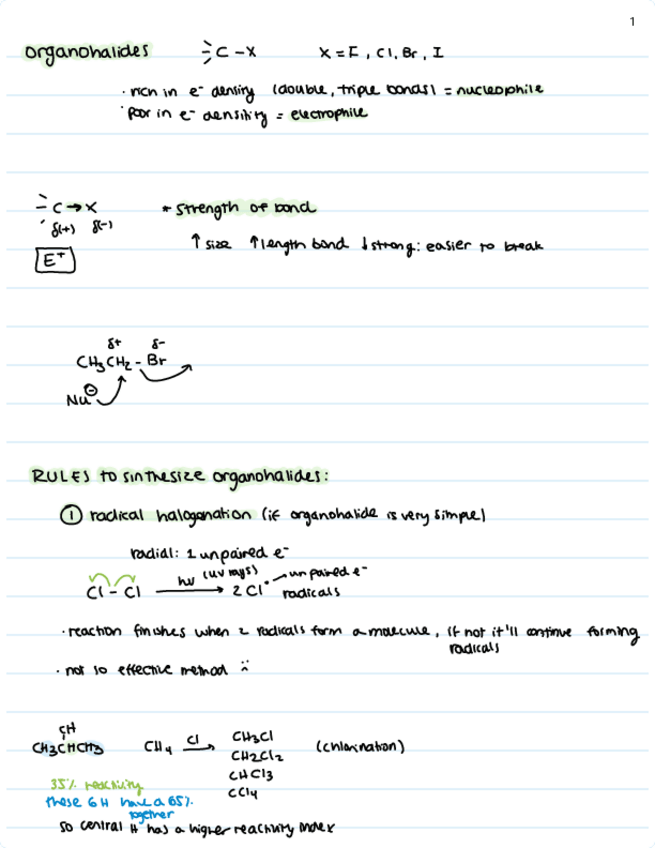 1
organohalides C-X X = F, Cl, Br, I
· rich in e- density (double, triple bonds) = nucleophile
· Poor in e- density = electrophile
C→X * strength of bond
δ(+) δ(-)
↑ size ↑ length bond ↓ strong: easier to break
E+
δ+ δ-
CH3CH2 - Br
Nu⊖
RULES to sinthesize organohalides:
① radical halogenation (if organohalide is very simple)
radial: 1 unpaired e-
Cl - Cl hν (UV rays) → 2 Cl· unpaired e-
radicals
· reaction finishes when 2 radicals form a molecule, if not it'll continue forming
radicals
· not so effective method :(
CH3Cl
CH3CHCH3 CH4 Cl → CH2Cl2 (chlorination)
CHCl3
CCl4
35% reactivity
these 6 H have a 65%
together
so central H has a higher reactivity index